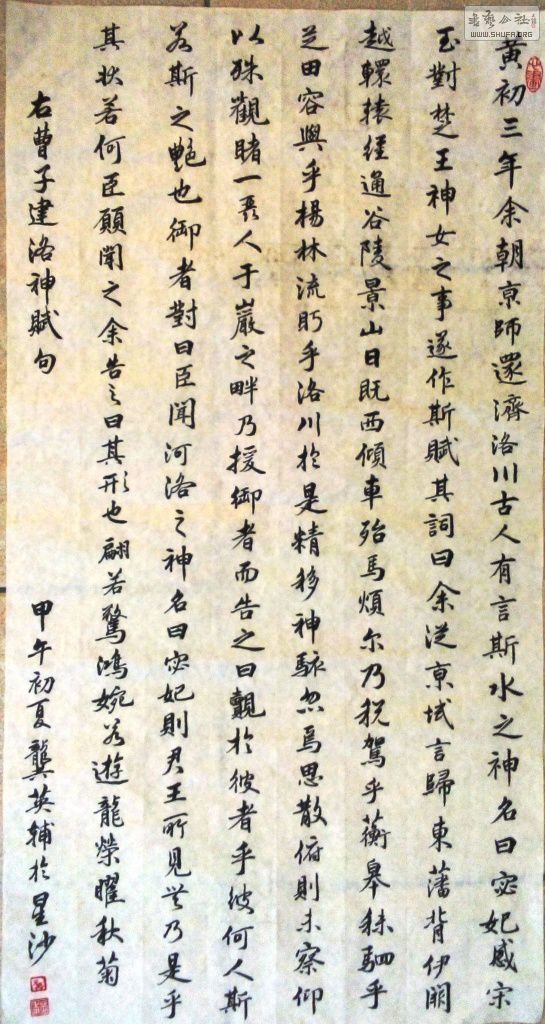 黄初三年余朝京師還濟洛川古人有言斯水之神名曰宓妃感宋
玉對楚王神女之事遂作斯賦其詞曰余从京域言歸東藩背伊闕
越轘轅經通谷陵景山日既西傾車殆馬煩尔乃税駕乎蘅皋秣駟乎
芝田容與乎楊林流眄乎洛川於是精移神駭忽焉思散俯則未察仰
以殊觀睹一麗人于巖之畔乃援御者而告之曰覿於彼者乎彼何人斯
若斯之艷也御者對曰臣聞河洛之神名曰宓妃則君王所見無乃是乎
其狀若何臣願聞之余告之曰其形也翩若驚鴻婉若遊龍榮曜秋菊
右曹子建洛神賦句
甲午初夏龔英輔於星沙
書藝公社
WWW.SHUFA.ORG